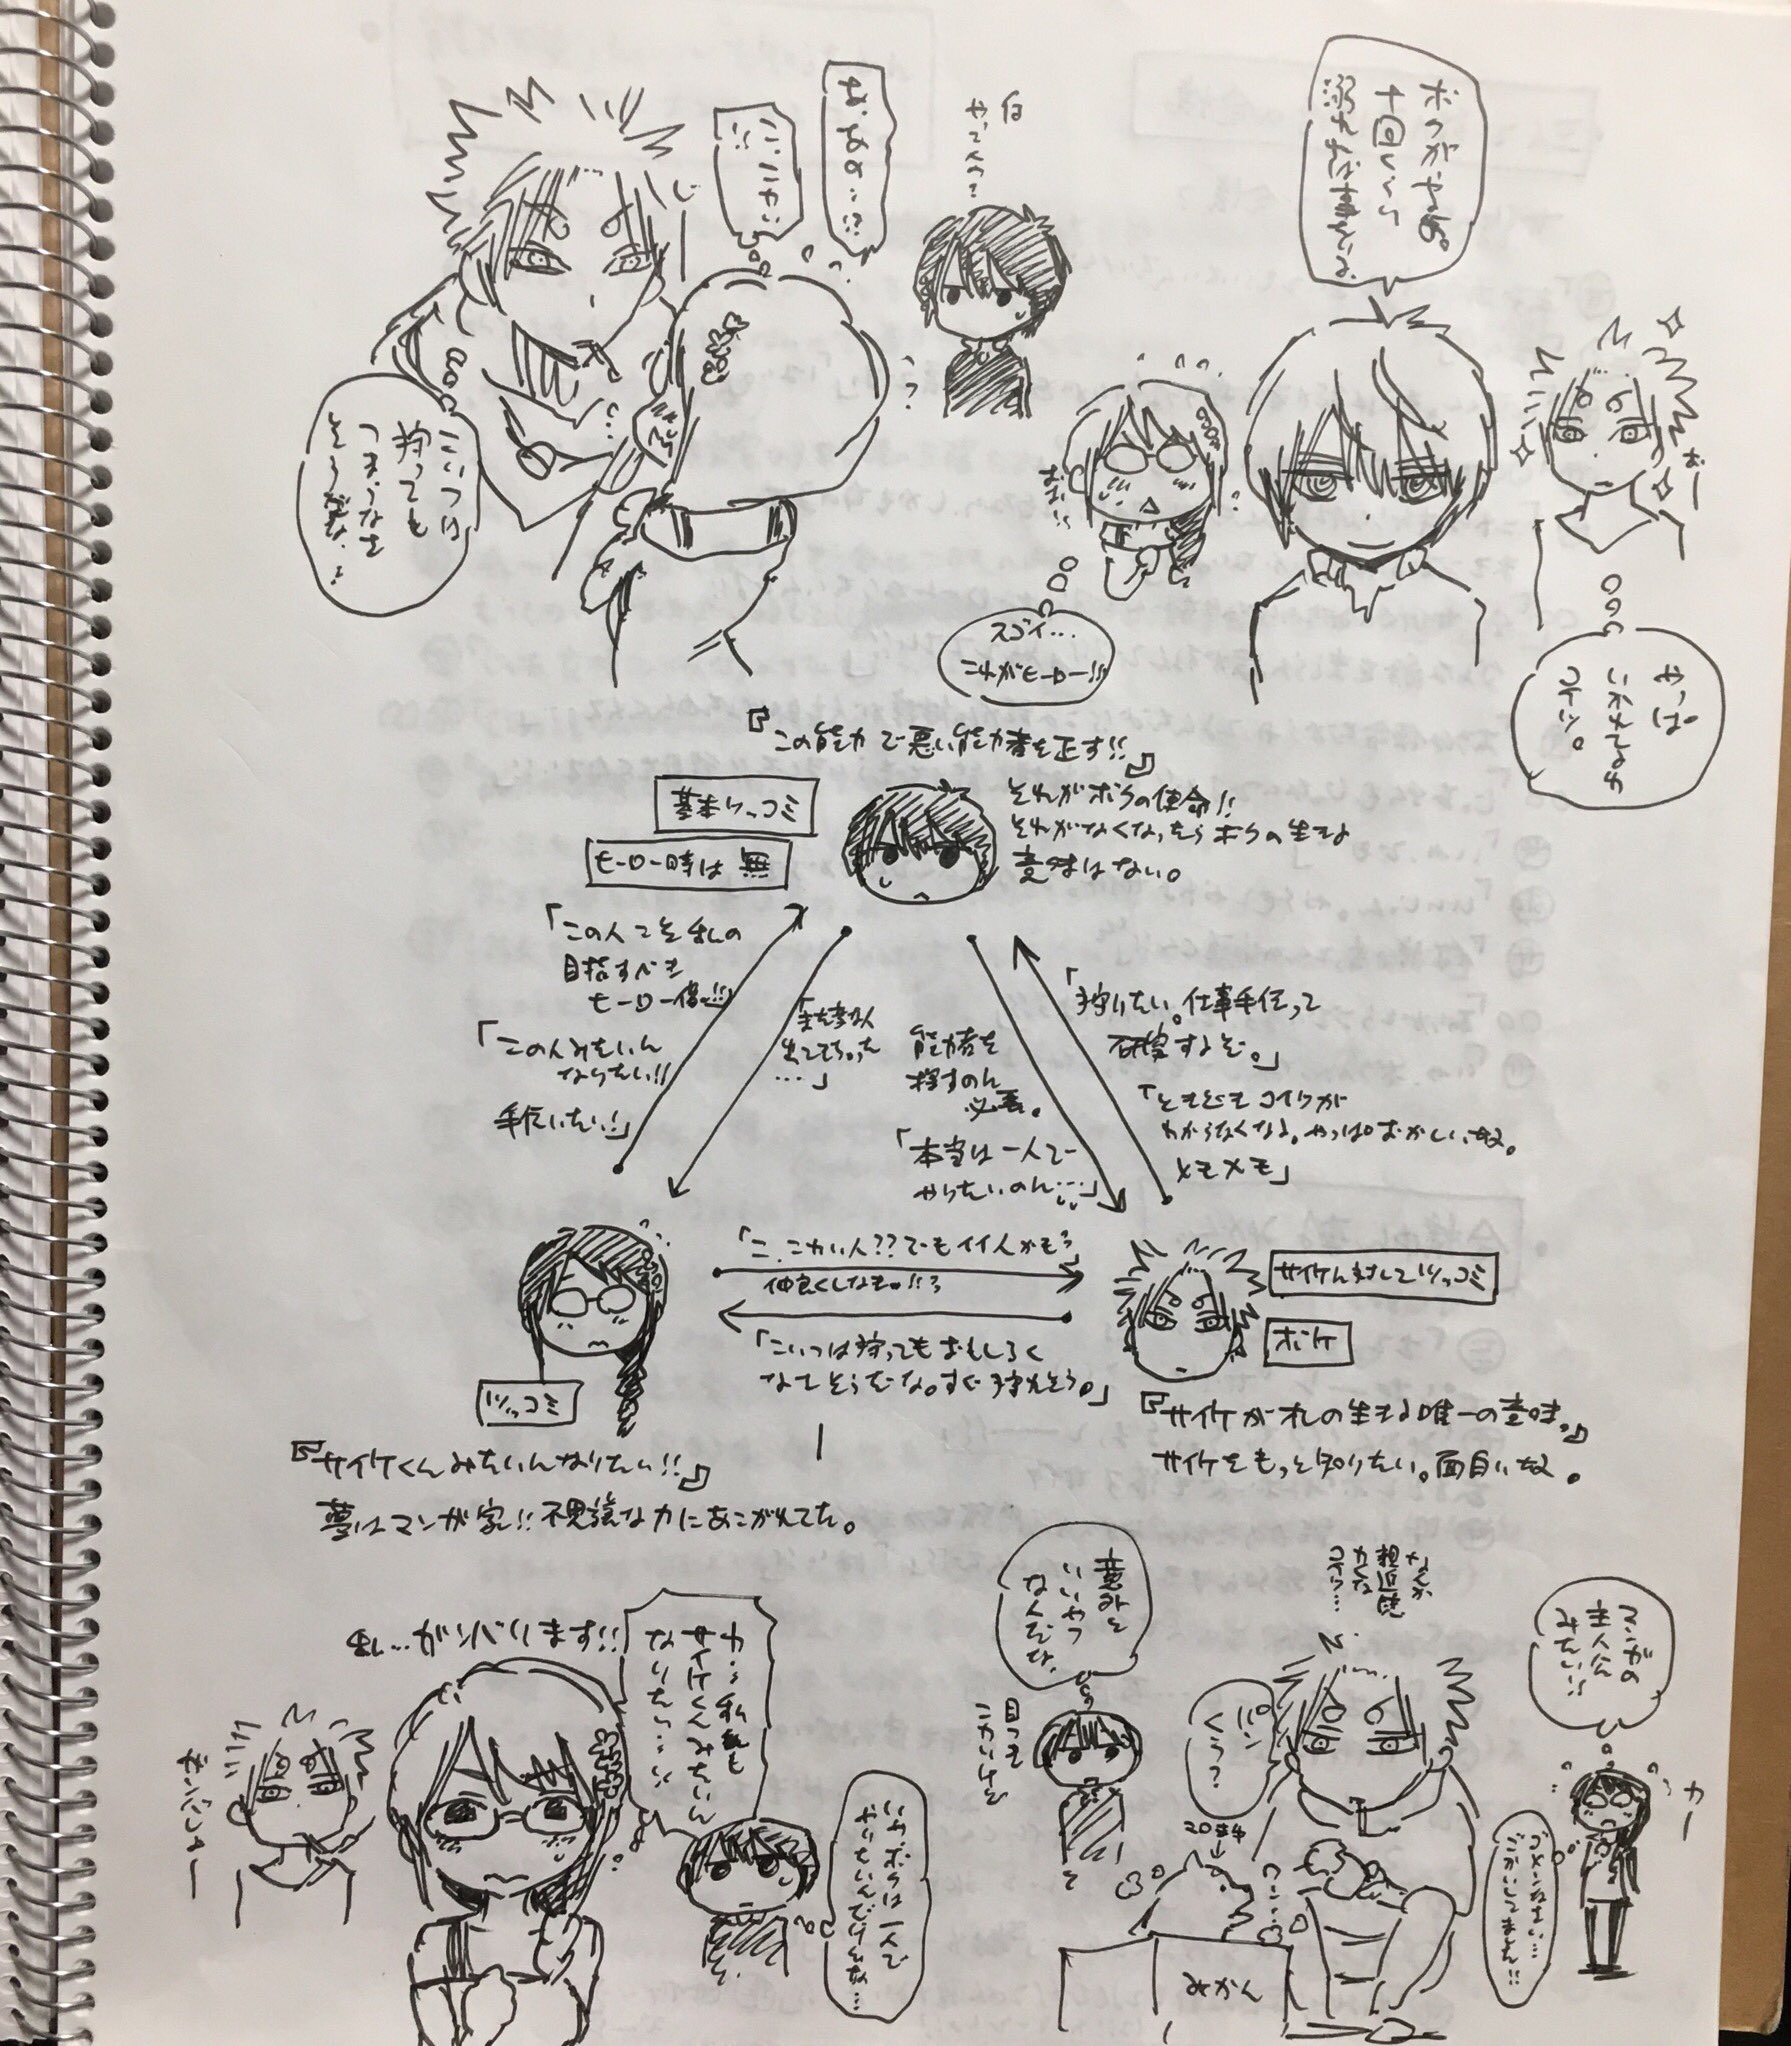 何
やってんの?
スゴイ…
これがヒーロー!!!
こいつは
狩っても
つまらなそ
そうだな…
『この能力で悪い能力者を正す!!』
それがボクの使命!!
それがなくなったらボクの生きる
意味はない。
基本ツッコミ
ヒーロー時は無
「この人こそ私の
目指すべき
ヒーロー像!!!」
「この人みたいに
なりたい!!
手伝いたい!」
能力者を
探すのに
必要。
「本当は一人で
やりたいのに…」
「狩りたい。仕事手伝って
研究するぞ。」
「ときどきコイツが
わからなくなる。やっぱおかしい奴。
メモメモ」
「こ、こわい人??でもイイ人かも?」
仲良くしなきゃ!!?
「こいつは狩ってもおもしろく
なさそうだな。すぐ狩れそう。」
サイケに対してツッコミ
ボケ
ツッコミ
『サイケがオレの生きる唯一の意味。』
サイケをもっと知りたい。面白い奴。
『サイケくんみたいになりたい!!』
夢はマンガ家!!不思議な力にあこがれてた。
私…ガンバります!!
わ…私も
サイケくんみたいに
なりたい…
いやボクは一人で
やりたいんだけどな…
意外と
いいやつ
なんだな。
目つき
こわいけど
パン
くう?
マンガの
主人公
みたい!!
ゴメンなさい…
ごかいしてました!!
みかん